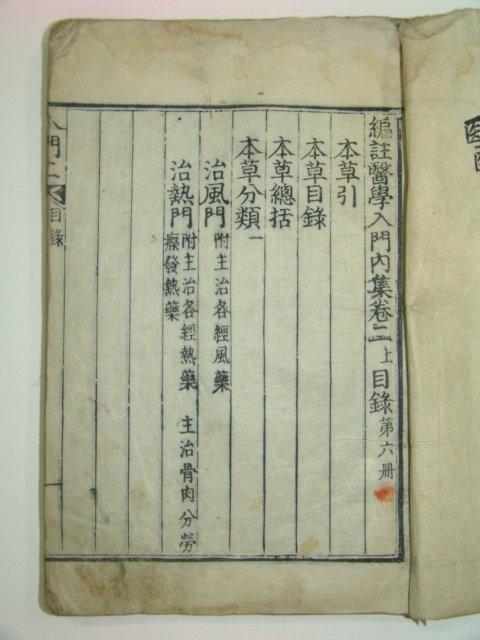 編註醫學入門內集卷二上目錄第六册
本草引
本草目錄
本草總括
本草分類一
治風門附主治各經風藥
治熱門附主治各經熱藥 主治骨肉分勞
瘵發熱藥
入門二 目錄